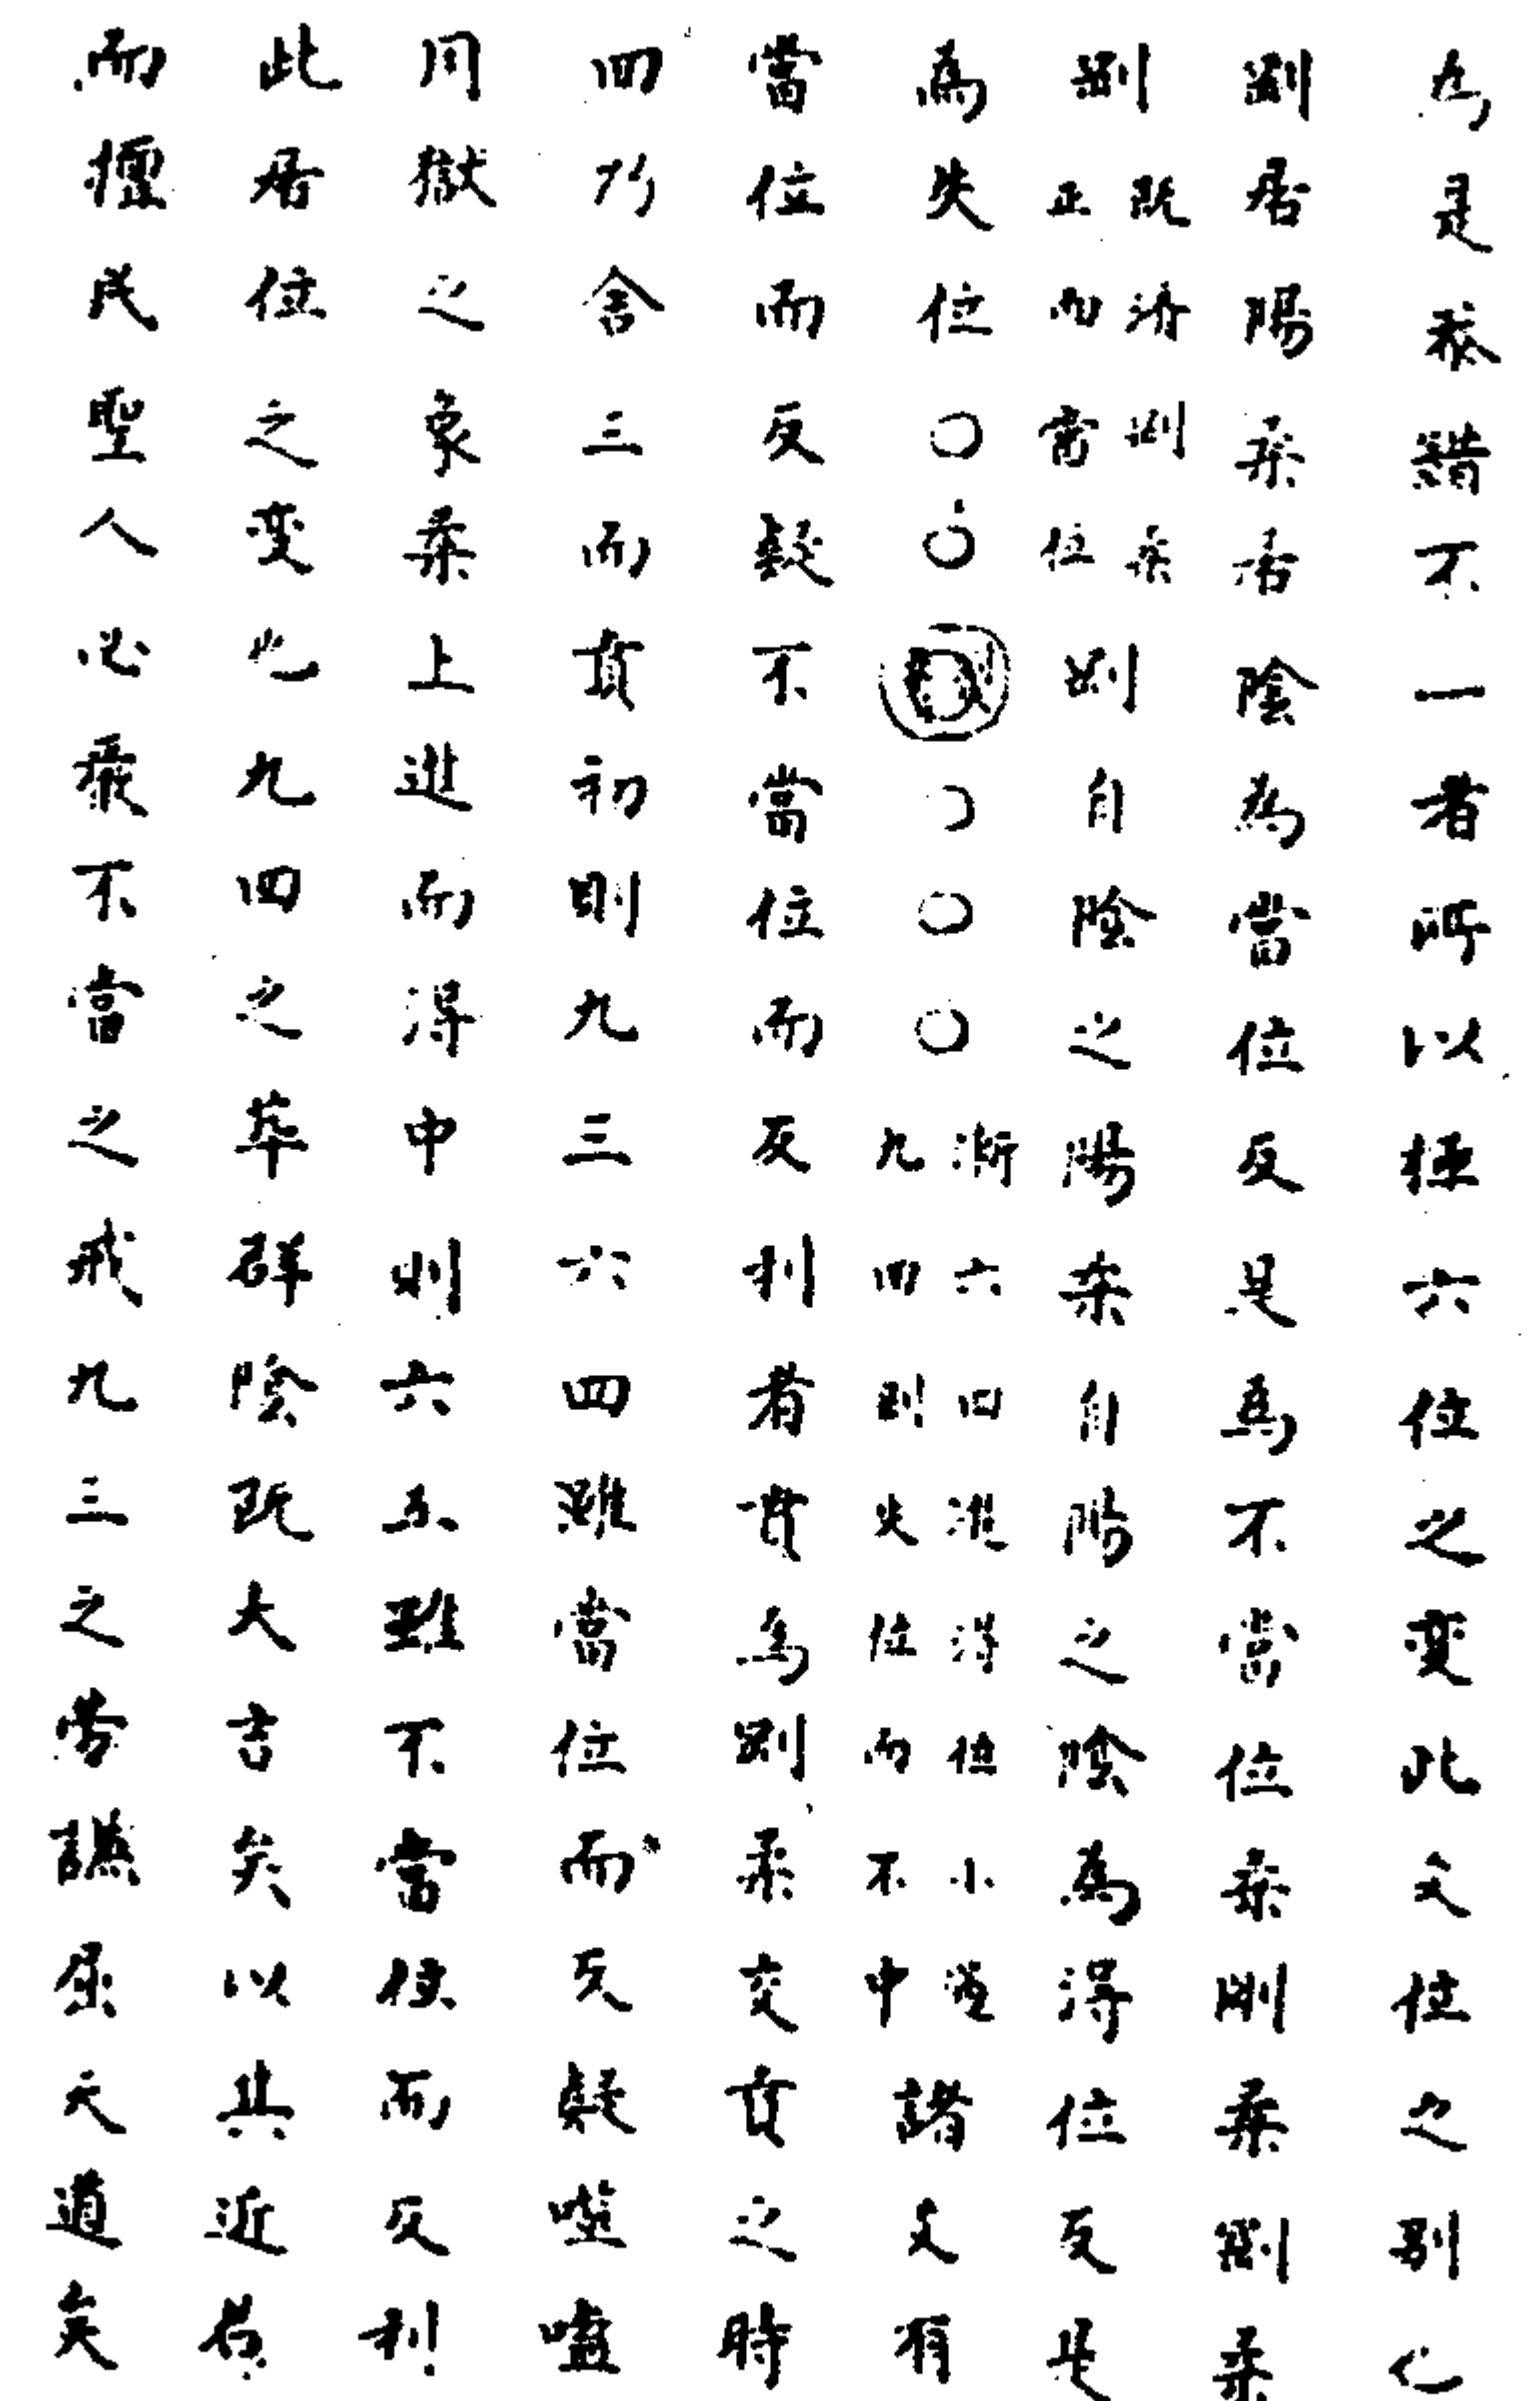 為是叅錯不一者所以極六位之變此爻位之別也
剛居陽柔居陰為當位反是為不當位柔剛柔剛柔
剛既濟剛柔正而當位剛自陰之陽柔自陽之陰為得位反是
為失位○○○○○漸六四進得位小過九四剛失位而不中諸爻有
當位而反疑不當位而反利者賁為剛柔交賁之時
四乃舍三而賁初則九三六四雖當位而反疑噬嗑
用獄之象柔上進而得中則六五雖不當位而反利
此居位之變也九四之萃群陰既大吉矣以其近君
而擅民聖人必嚴不當之戒九三之勞謙屈天道矣